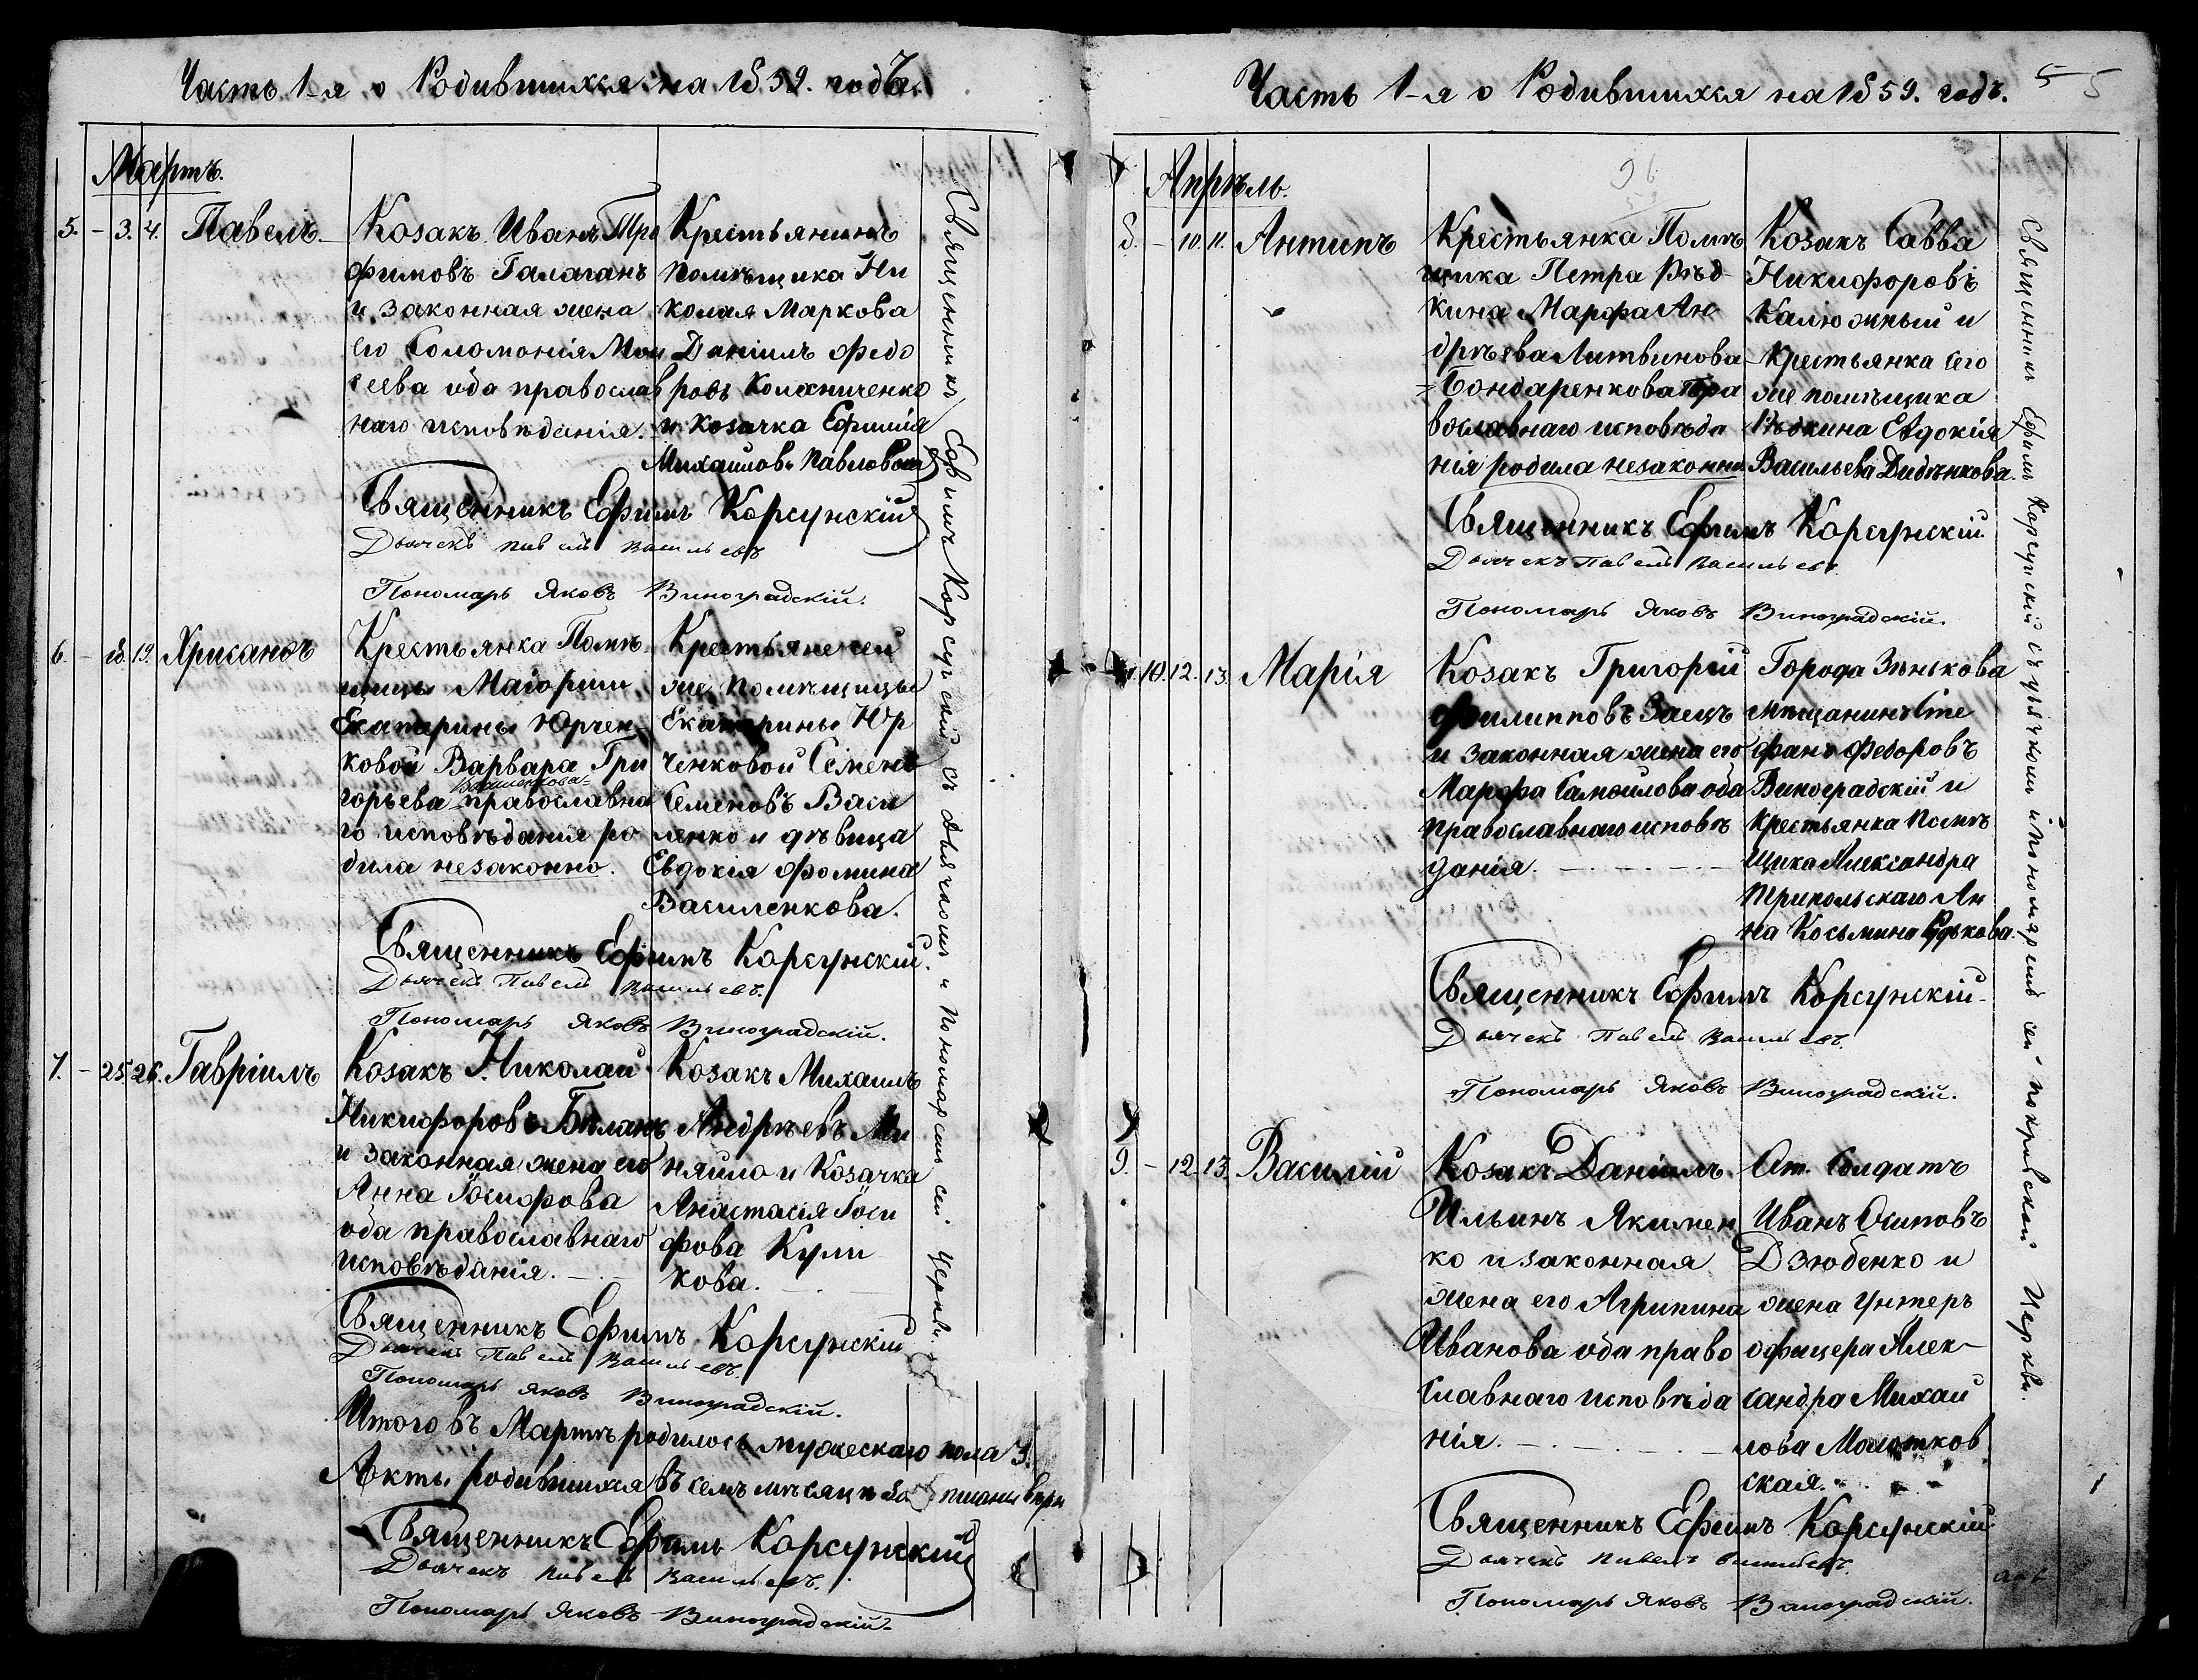 Часть 1-я о Родившихся на 1859. годъ.
Мартъ.
5. - 3. 4. Павелъ.
Козакъ Иванъ Тро
фимовъ Галаганъ
и законная жена
его Соломонія Мои
сеева оба православ
наго исповѣданія.
Крестьянинъ
помѣщика Ни
колая Маркова
Даніилъ Федо
ровъ Коляниченко
и козачка Ефимія
Михаилова Павловская
Священникъ Ефимъ Корсунскій
Дьячекъ Павелъ Васильевъ
Пономарь Яковъ Виноградскій.
6. - 18. 19. Хрисанѳъ
Крестьянка Помѣ
щицы Маіорши
Екатерины Юрчен
ковой Варвара Гри
горьева православна
го исповѣданія ро
дила незаконно.
Крестьяне сей
же помѣщицы
Екатерины Юр
ченковой Семенъ
Семеновъ Васи
ленко и дѣвица
Евдокія Фомина
Василенкова.
Священникъ Ефимъ Корсунскій.
Дьячекъ Павелъ Васильевъ.
Пономарь Яковъ Виноградскій.
7. - 25. 26. Гавріилъ
Козакъ Николай
Никифоровъ Биланъ
и законная жена его
Анна Іосифова
оба православнаго
исповѣданія.
Козакъ Михаилъ
Андрѣевъ Ми
няйло и Козачка
Анастасія Іоси
фова Кули
кова.
Священникъ Ефимъ Корсунскій
Дьячекъ Павелъ Васильевъ.
Пономарь Яковъ Виноградскій.
Итого въ Мартѣ родилось мужескаго пола 3.
Акты родившихся въ семъ мѣсяцѣ писаны вѣрн
Священникъ Ефимъ Корсунскій
Дьячекъ Павелъ Васильевъ.
Пономарь Яковъ Виноградскій.
Священникъ Ефимъ Корсунскій съ дьячкомъ и пономаремъ сей церкви.
Часть 1-я о Родившихся на 1859. годъ.
5 5
96
Апрѣль.
8. - 10. 11. Антипъ
Крестьянка Помѣ
щика Петра Рѣд
кина Марфа Ан
дрѣева Литвинова
=Бондаренкова пра
вославнаго исповѣда
нія родила незаконно
Козакъ Савва
Никифоровъ
Калюжный и
Крестьянка сего
же помѣщика
Рѣдкина Евдокія
Васильева Дидѣнкова.
Священникъ Ефимъ Корсунскій.
Дьячекъ Павелъ Васильевъ.
Пономарь Яковъ Виноградскій.
12. 13. Марія
Козакъ Григорій
Филипповъ Заецъ
и законная жена его
Марфа Самойлова оба
православнаго исповѣ
данія.
Города Зѣнькова
мѣщанинъ Сте
фанъ Федоровъ
Виноградскій и
крестьянка помѣ
щика Александра
Трипольскаго Ан
на Косьмина
Священникъ Ефимъ Корсунскій.
Дьячекъ Павелъ Васильевъ.
Пономарь Яковъ Виноградскій.
9. - 12. 13. Василій
Козакъ Даніилъ
Ильинъ Якимен
ко и законная
жена его Агрипина
Иванова оба право
славнаго исповѣда
нія.
От. Солдатъ
Иванъ Осиповъ
Дзюбенко и
жена унтеръ
офицера Алек-
сандра Михай
лова Молотков
ская.
Священникъ Ефимъ Корсунскій
Дьячекъ Павелъ Васильевъ.
Пономарь Яковъ Виноградскій.
Священникъ Ефимъ Корсунскій съ дьячкомъ и пономаремъ сей Покровской Церкви.